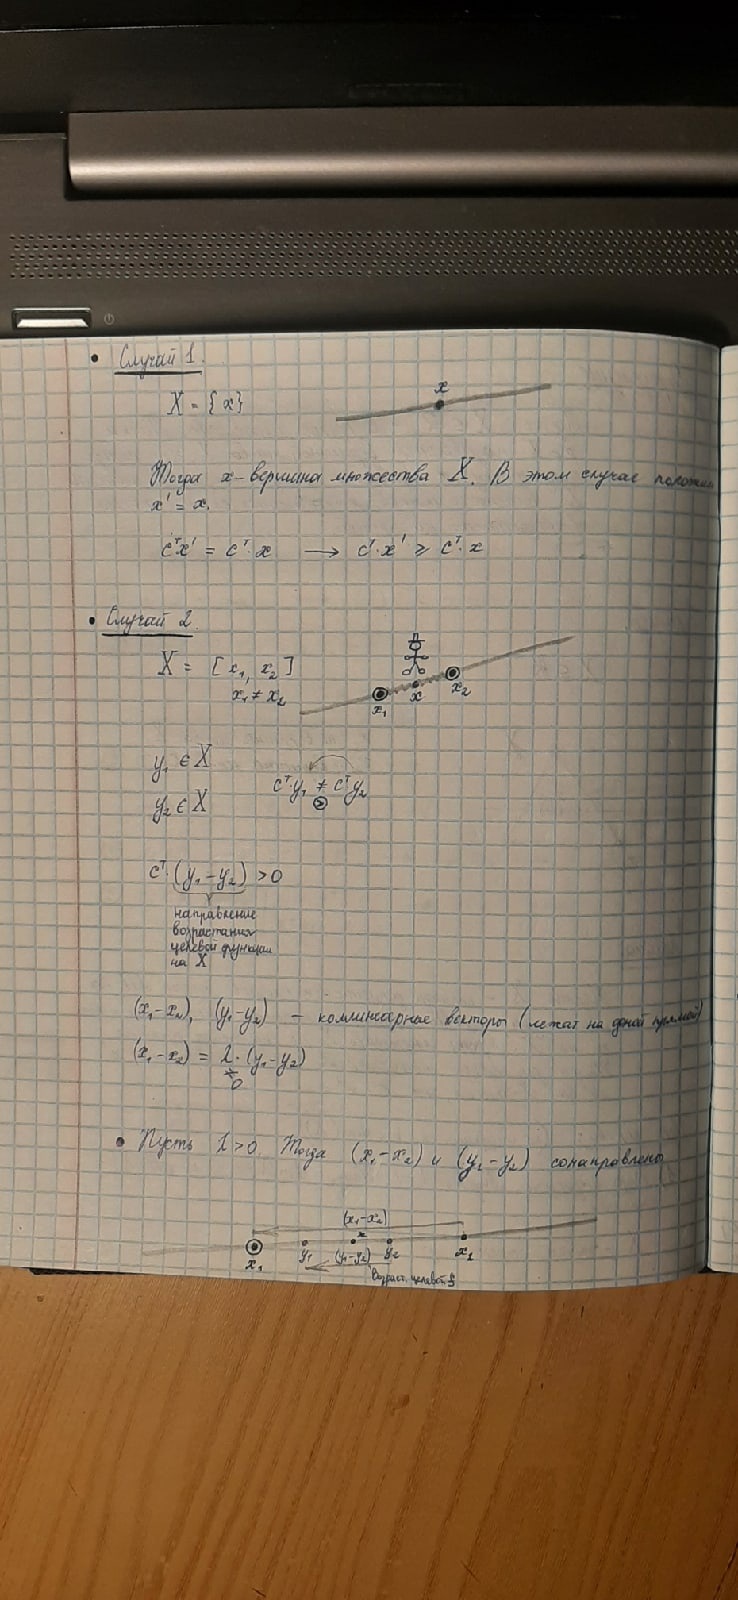 • Случай 1.
X = {x}
x
Тогда x - вершина множества X. В этом случае положим
x' = x.
cᵀx' = cᵀ·x → cᵀ·x' ≥ cᵀ·x
• Случай 2.
X = [x₁, x₂]
x₁ ≠ x₂
x₁ x x₂
y₁ ∈ X
y₂ ∈ X
cᵀy₁ ≠ cᵀy₂
>
cᵀ·(y₁ - y₂) > 0
направление
возрастания
целевой функции
на X
(x₁ - x₂), (y₁ - y₂) - коллинеарные векторы (лежат на одной прямой)
(x₁ - x₂) = λ·(y₁ - y₂)
≠
0
• Пусть λ > 0. Тогда (x₁ - x₂) и (y₁ - y₂) сонаправлены
(x₁ - x₂)
x₁ y₁ x y₂ x₁
(y₁ - y₂)
Возраст. целевой f